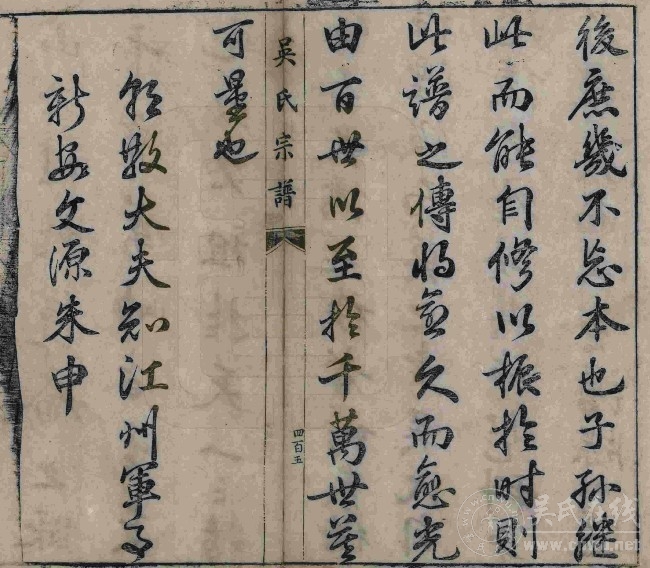 後庶幾不忘本也子孫繼
此而能自修以振於時則
此譜之傳將愈久而愈光
由百世以至於千萬世莫
吳氏宗譜
四百五
可量也
朝散大夫知江州軍事
新安文源朱申
吴氏在线